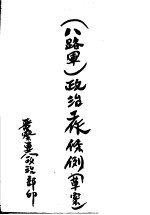 (八路軍)政治條例(草案)
晉察冀政治部印